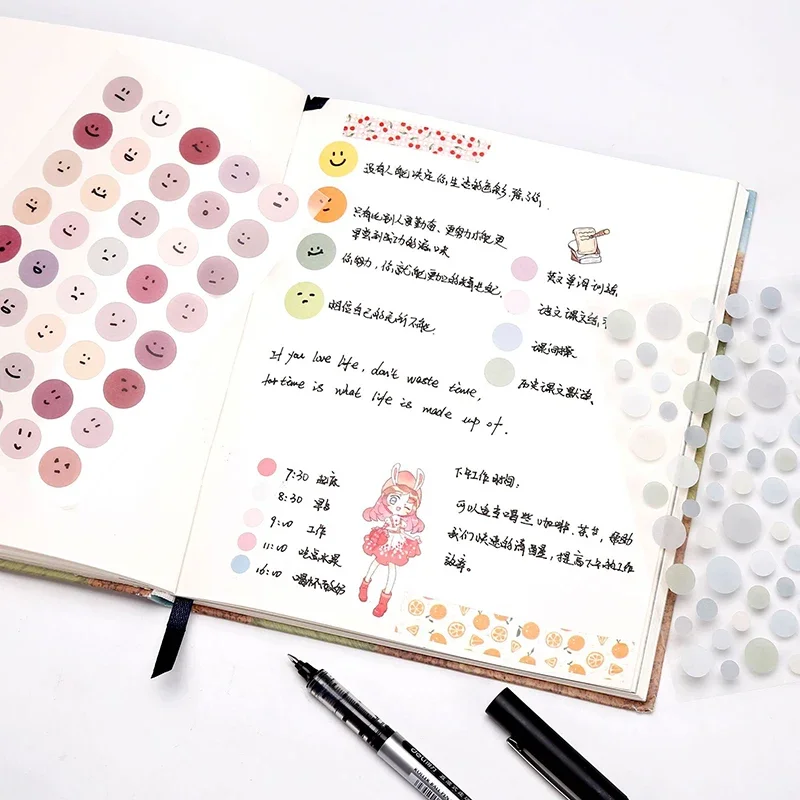 没有人能决定你生活的色彩,除了你.
只有比别人更勤奋、更努力才能更
早尝到成功的滋味
你努力,你就能更
相信自己的无所不能.
英文单词训练
语文课文练习
课间操
历史课文默读、
If you love life, don't waste time,
for time is what life is made up of.
7:30 起床
8:30 早餐
9:00 工作
11:00 吃点水果
16:00 喝杯酸奶
下午工作时间,
可以适当喝些咖啡、茶等,帮助
我们快速的清醒,提高下午的工作
效率。
deli